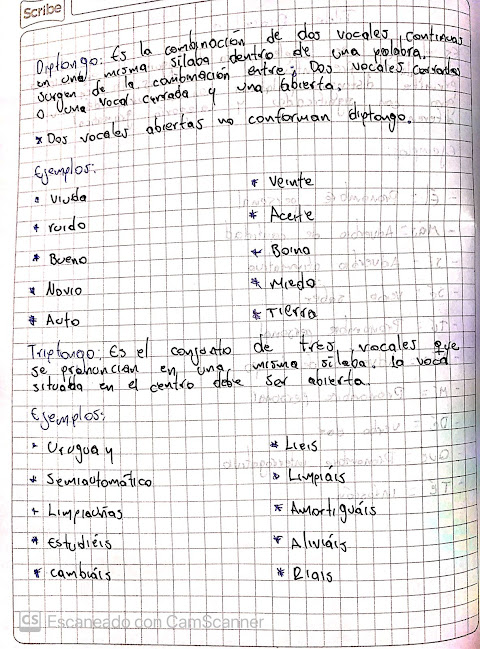 Scribe
Diptongo: Es la combinación de dos vocales continuas
en una misma sílaba dentro de una palabra.
surgen de la combinación entre; Dos vocales cerradas
o una vocal cerrada y una abierta.
* Dos vocales abiertas no conforman diptongo.
Ejemplos:
* Viuda
* ruido
* Bueno
* Novio
* Auto
* Veinte
* Aceite
* Boina
* Miedo
* Tierra
Triptongo: Es el conjunto de tres vocales que
se pronuncian en una misma sílaba. la vocal
situada en el centro debe ser abierta.
Ejemplos:
* Uruguay
* Semiautomático
* Limpiauñas
* Estudiéis
* cambiáis
* Lieis
* Limpiáis
* Amortiguáis
* Aliviáis
* Riais
CS Escaneado con CamScanner